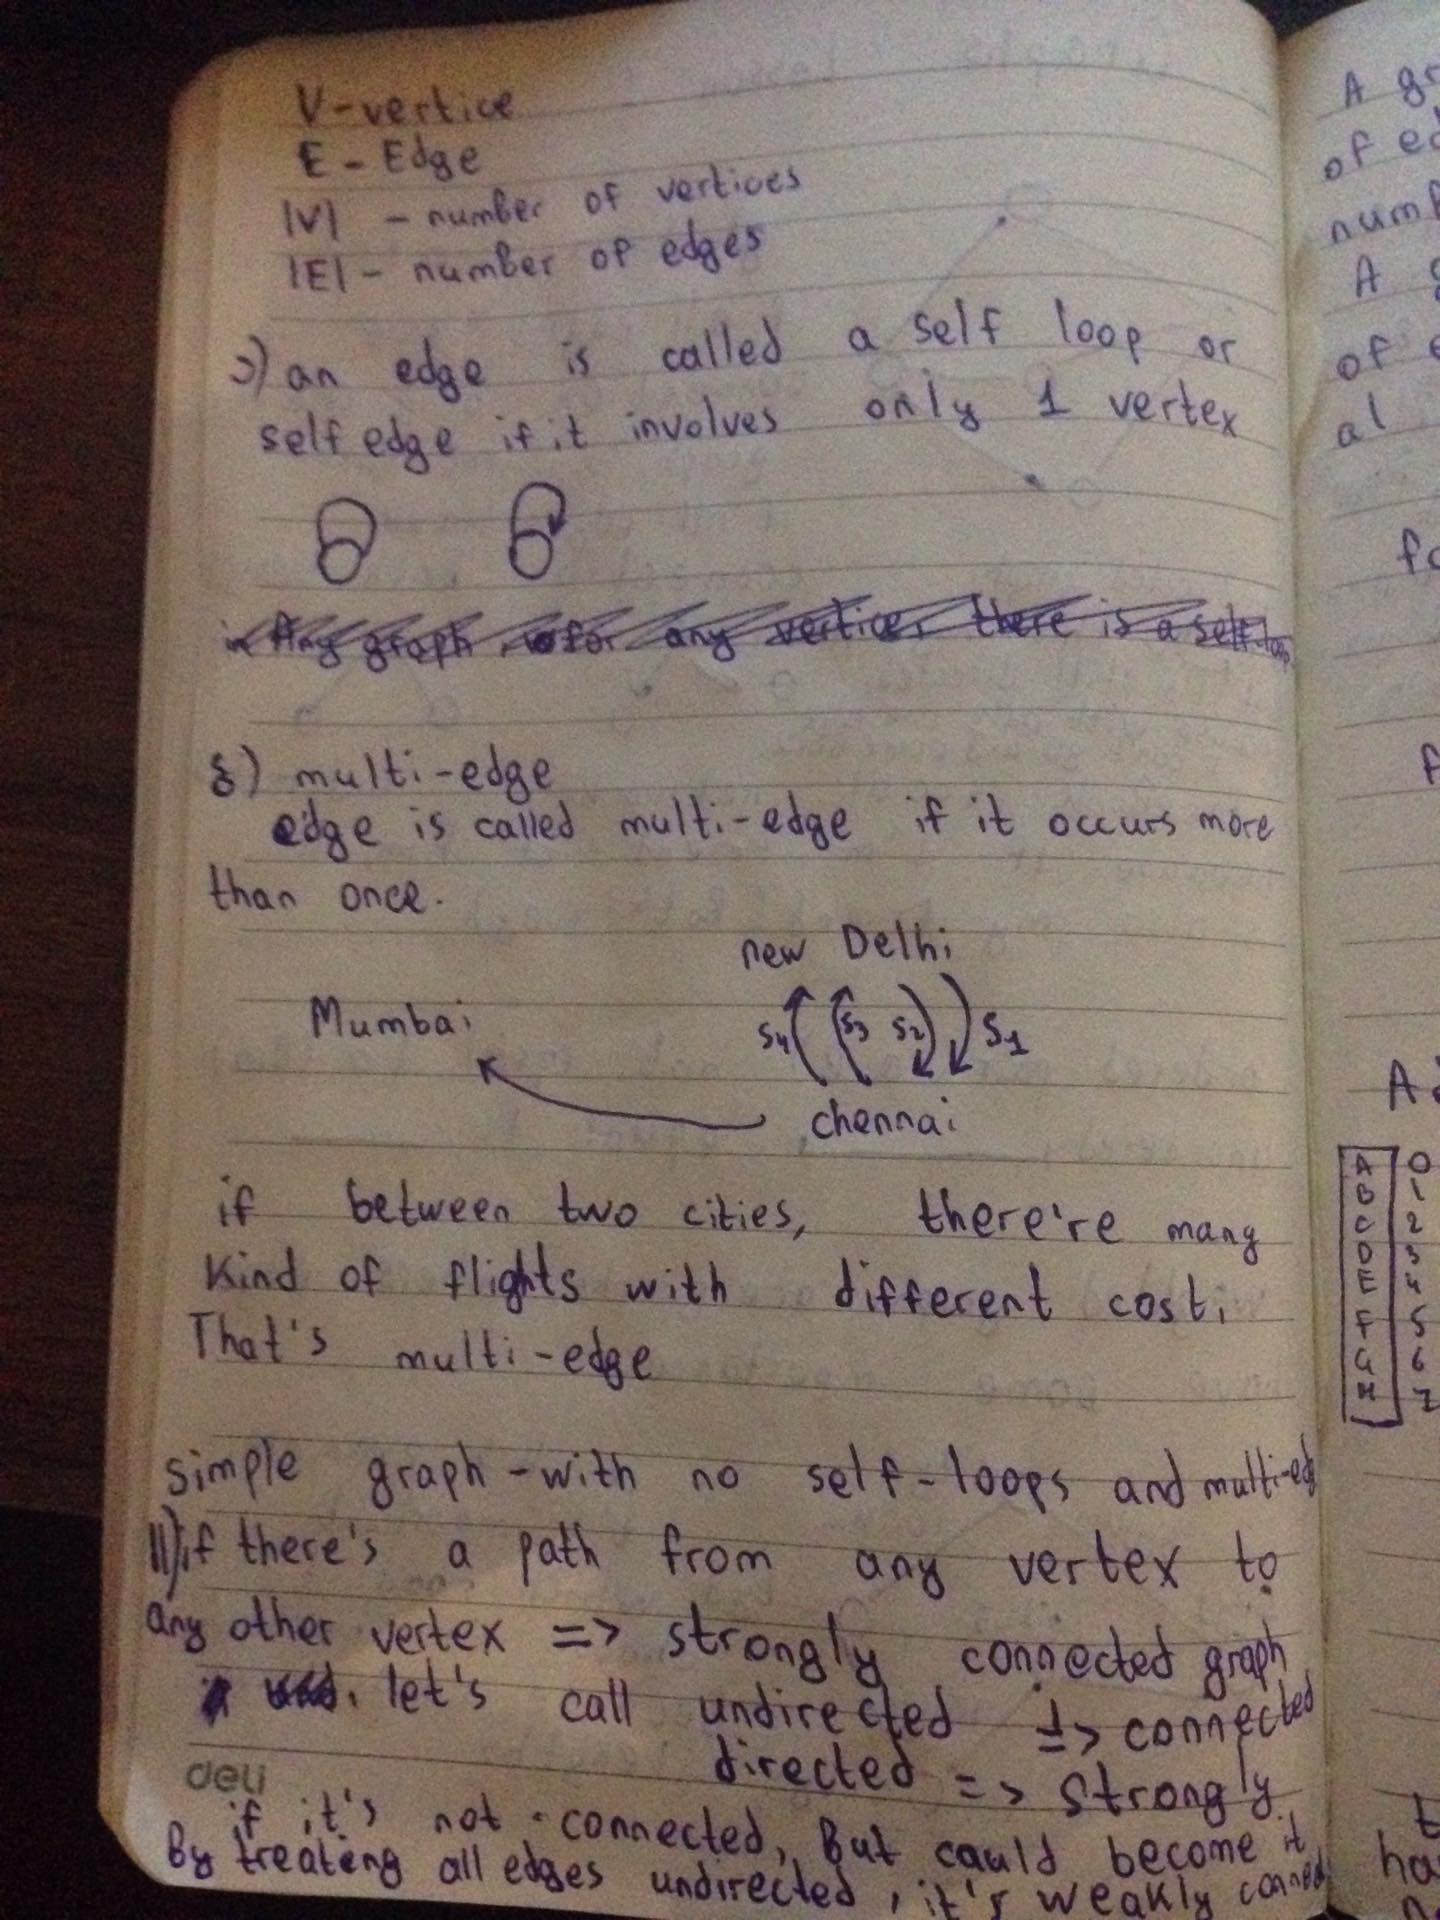 V-vertice
E - Edge
|V| - number of vertices
|E| - number of edges
an edge is called a self loop or
self edge if it involves only 1 vertex
Any graph, for any vertice, there is a self-loop
8) multi-edge
edge is called multi-edge if it occurs more
than once.
new Delhi
Mumbai
S4 S3 S2 S1
chennai
if between two cities, there're many
Kind of flights with different cost,
That's multi-edge
simple graph - with no self-loops and multi-edg
11) if there's a path from any vertex to
any other vertex => strongly connected graph
let's call undirected => connected
directed => strongly
deli
if it's not connected, But could become it
By treating all edges undirected, it's weakly conned
A gr
of ed
numb
A g
of e
al
fo
f
A
A 0
B 1
C 2
D 3
E 4
F 5
G 6
H 7
t
ha